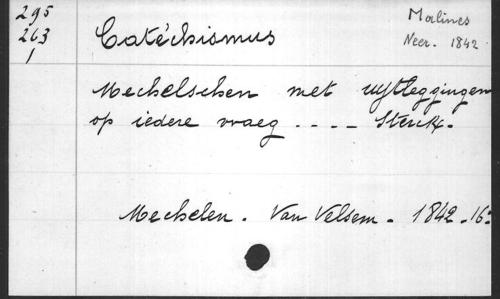 295
263
1
Catéchismus
Malines
Neer. 1842
Mechelschen met uytleggingen
op iedere vraeg .... Sterck.
Mechelen. Van Velsem. 1842. 16: